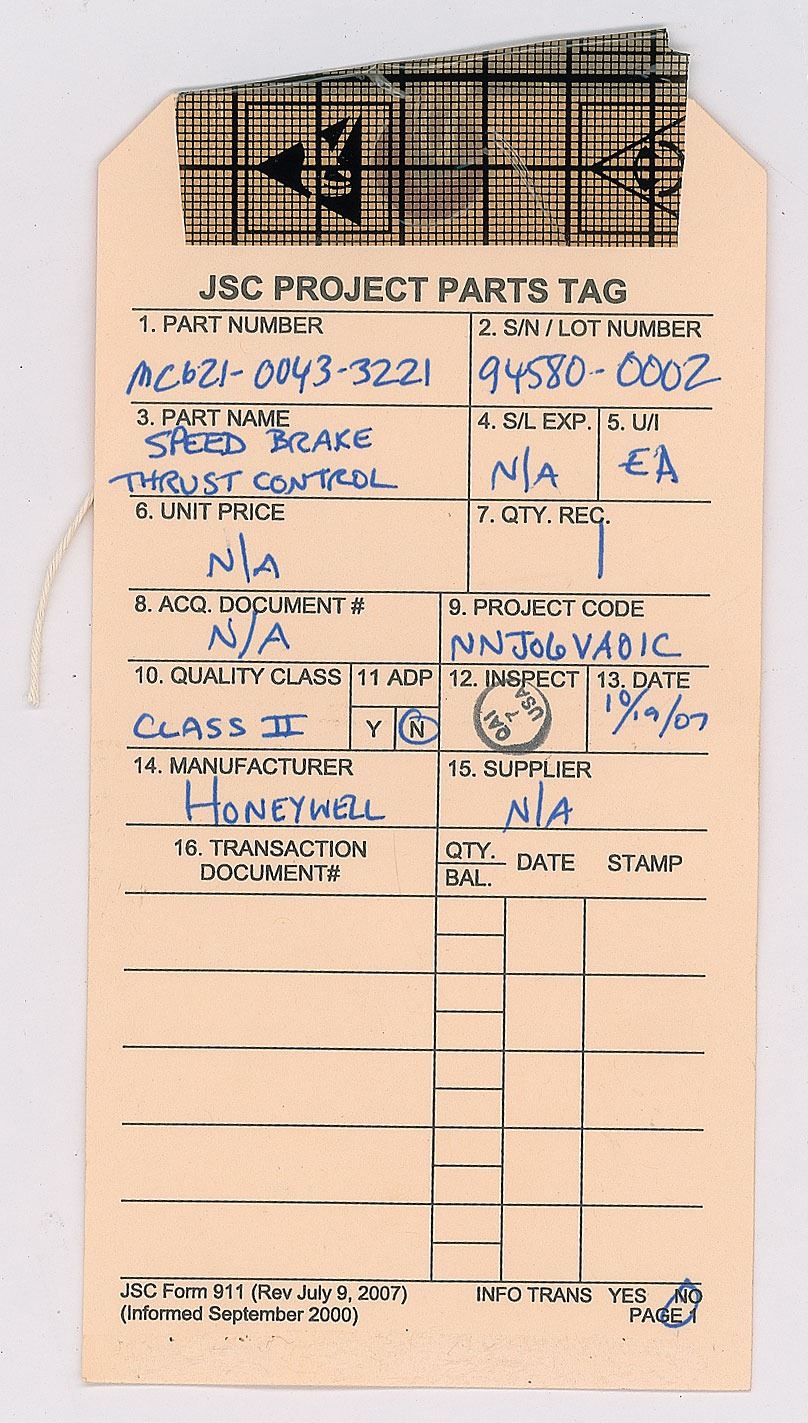 JSC PROJECT PARTS TAG
1. PART NUMBER
MC621-0043-3221
2. S/N / LOT NUMBER
94580-0002
3. PART NAME
SPEED BRAKE
THRUST CONTROL
4. S/L EXP.
N/A
5. U/I
EA
6. UNIT PRICE
N/A
7. QTY. REC.
1
8. ACQ. DOCUMENT #
N/A
9. PROJECT CODE
NNJ06VA01C
10. QUALITY CLASS
CLASS II
11 ADP
Y N
12. INSPECT
QAI
7
USA
13. DATE
10/19/07
14. MANUFACTURER
HONEYWELL
15. SUPPLIER
N/A
16. TRANSACTION
DOCUMENT#
QTY.
BAL.
DATE
STAMP
JSC Form 911 (Rev July 9, 2007)
(Informed September 2000)
INFO TRANS YES NO
PAGE 1